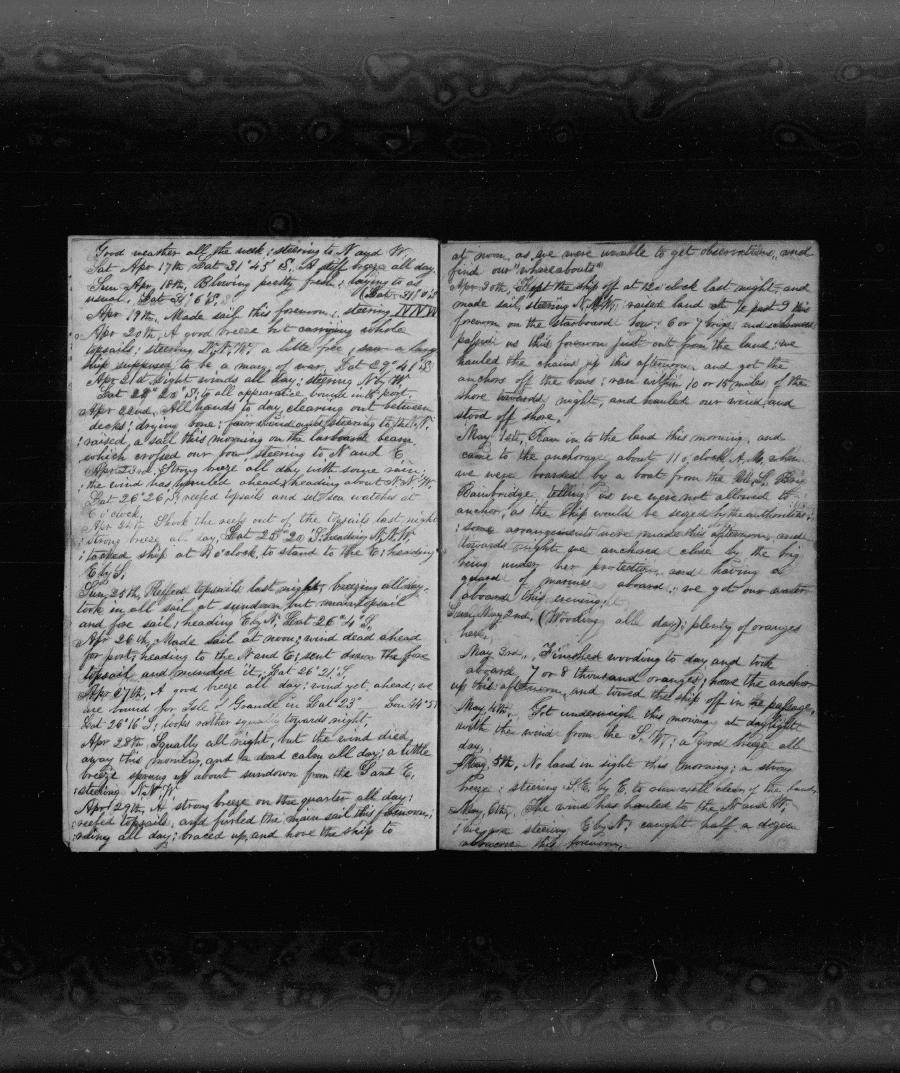 Good weather all the week; steering to N and W.
Sat Apr 17th Lat 31°45' S. A stiff breeze all day.
Sun Apr. 18th. Blowing pretty fresh; laying to as
usual. Lat 31° 6' S.
Apr 19th. Made sail this forenoon; steering NNW
Apr 20th. A good breeze but carrying whole
topsails; steering N.N.W. a little free, saw a large
ship supposed to be a man of war. Lat 29° 41' S
Apr 21st Light winds all day; steering N by W.
Lat 28° 22' S; to all appearance bound into port.
Apr 22nd. All hands to day, clearing out between
decks; drying bone; fair wind and steering to the N.
raised a sail this morning on the larboard beam,
which crossed our bow steering to N and E.
Apr 23rd. Strong breeze all day with some rain;
the wind has hauled ahead; heading about N.N.W.
Lat 26°26' S; reefed topsails and set sea watches at
6 o'clock.
Apr 24th Shook the reefs out of the topsails last night
strong breeze all day. Lat 25° 20' S; heading N.N.W
; tacked ship at 4 o'clock, to stand to the E; heading
E by S.
Sun, 25th, Reefed topsails last night, breezing all day.
took in all sail at sundown but main topsail
and fore sail; heading E by N; Lat 26° 1' S.
Apr 26th, Made sail at noon; wind dead ahead
for port; heading to the N and E; sent down the fore
topsail and mended it; Lat 26°21' S,
Apr 27th, A good breeze all day; wind yet ahead; we
are bound for Isle of Grande in Lat 23 Lon 44°
Lat 26°16' S; looks rather squally towards night.
Apr 28th, Squally all night, but the wind died
away this morning, and a dead calm all day; a little
breeze sprung up about sundown from the S and E.
steering N.N.W
Apr 29th, A strong breeze on the quarter all day;
reefed topsails, and furled the main sail this forenoon;
all day; braced up, and hove the ship to
at noon, as we were unable to get observations, and
find our "whereabouts"
Apr 30th, Kept the ship off at 12 o'clock last night, and
made sail, steering N.N.W; raised land at ½ past 9 this
forenoon on the starboard bow; 6 or 7 brigs and schooners
passed us this forenoon just out from the land; we
hauled the chains up this afternoon, and got the
anchors off the bows; ran within 10 or 15 miles of the
shore towards night, and hauled our wind and
stood off shore.
May 1st, Ran in to the land this morning, and
came to the anchorage about 11 o'clock A.M. when
we were boarded by a boat from the U.S. Brig
Bainbridge, telling us we were not allowed to
anchor, as the ship would be seized by the authorities;
; some arrangements were made this afternoon, and
towards night we anchored close by the brig
being under her protection, and having a
guard of marines aboard; we got our water
aboard this evening;
Sun, May 2nd, (Wooding all day); plenty of oranges
here.
May 3rd, Finished wooding to day and took
aboard 7 or 8 thousand oranges; hove the anchor
up this afternoon, and towed the ship off in the passage,
May 4th, Got underweigh this morning at daylight
with the wind from the S.W; a good breeze all
day,
May, 5th, No land in sight this morning; a strong
breeze; steering S.E. by E. to run well clear of the land,
May, 6th, The wind has hauled to the N and W.
; we are steering E by N; caught half a dozen
albacores this forenoon,